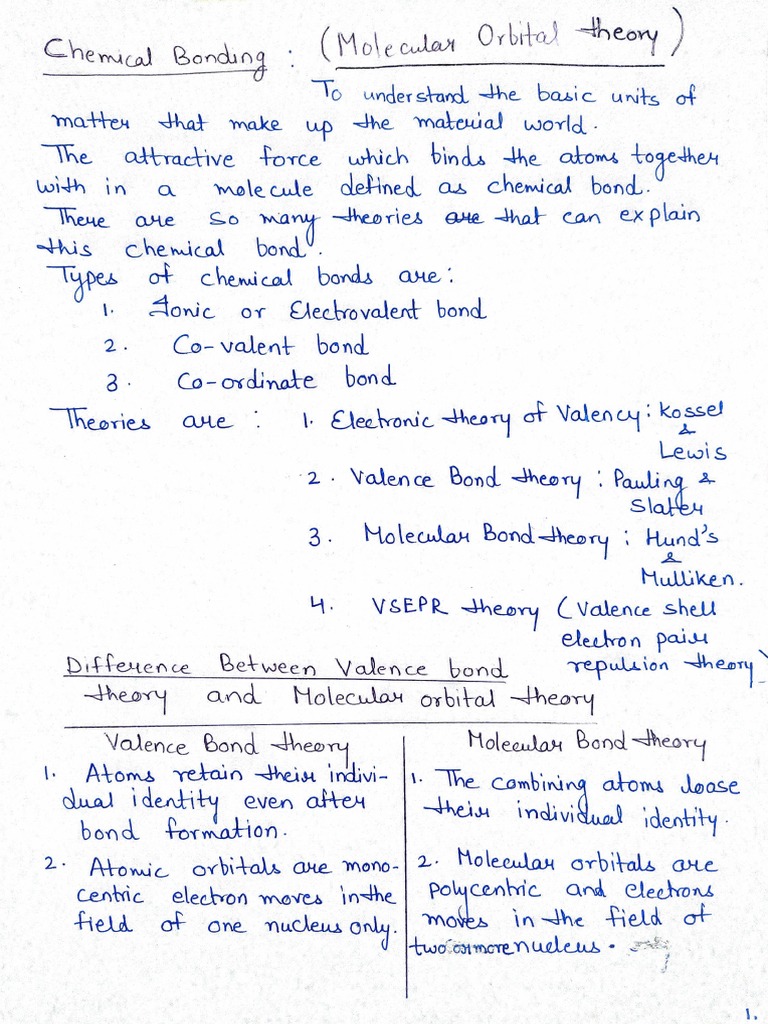 Chemical Bonding : (Molecular Orbital theory)
To understand the basic units of
matter that make up the material world.
The attractive force which binds the atoms together
with in a molecule defined as chemical bond.
There are so many theories are that can explain
this chemical bond.
Types of chemical bonds are:
1. Ionic or Electrovalent bond
2. Co-valent bond
3. Co-ordinate bond
Theories are : 1. Electronic theory of Valency : Kossel
&
Lewis
2. Valence Bond theory : Pauling &
Slater
3. Molecular Bond theory : Hund's
&
Mulliken.
4. VSEPR theory (Valence shell
electron pair
repulsion theory)
Difference Between Valence bond
theory and Molecular orbital theory
Valence Bond theory
1. Atoms retain their indivi-
dual identity even after
bond formation.
2. Atomic orbitals are mono-
centric electron moves in the
field of one nucleus only.
Molecular Bond theory
1. The combining atoms loose
their individual identity.
2. Molecular orbitals are
polycentric and electrons
moves in the field of
two or more nucleus.
1.